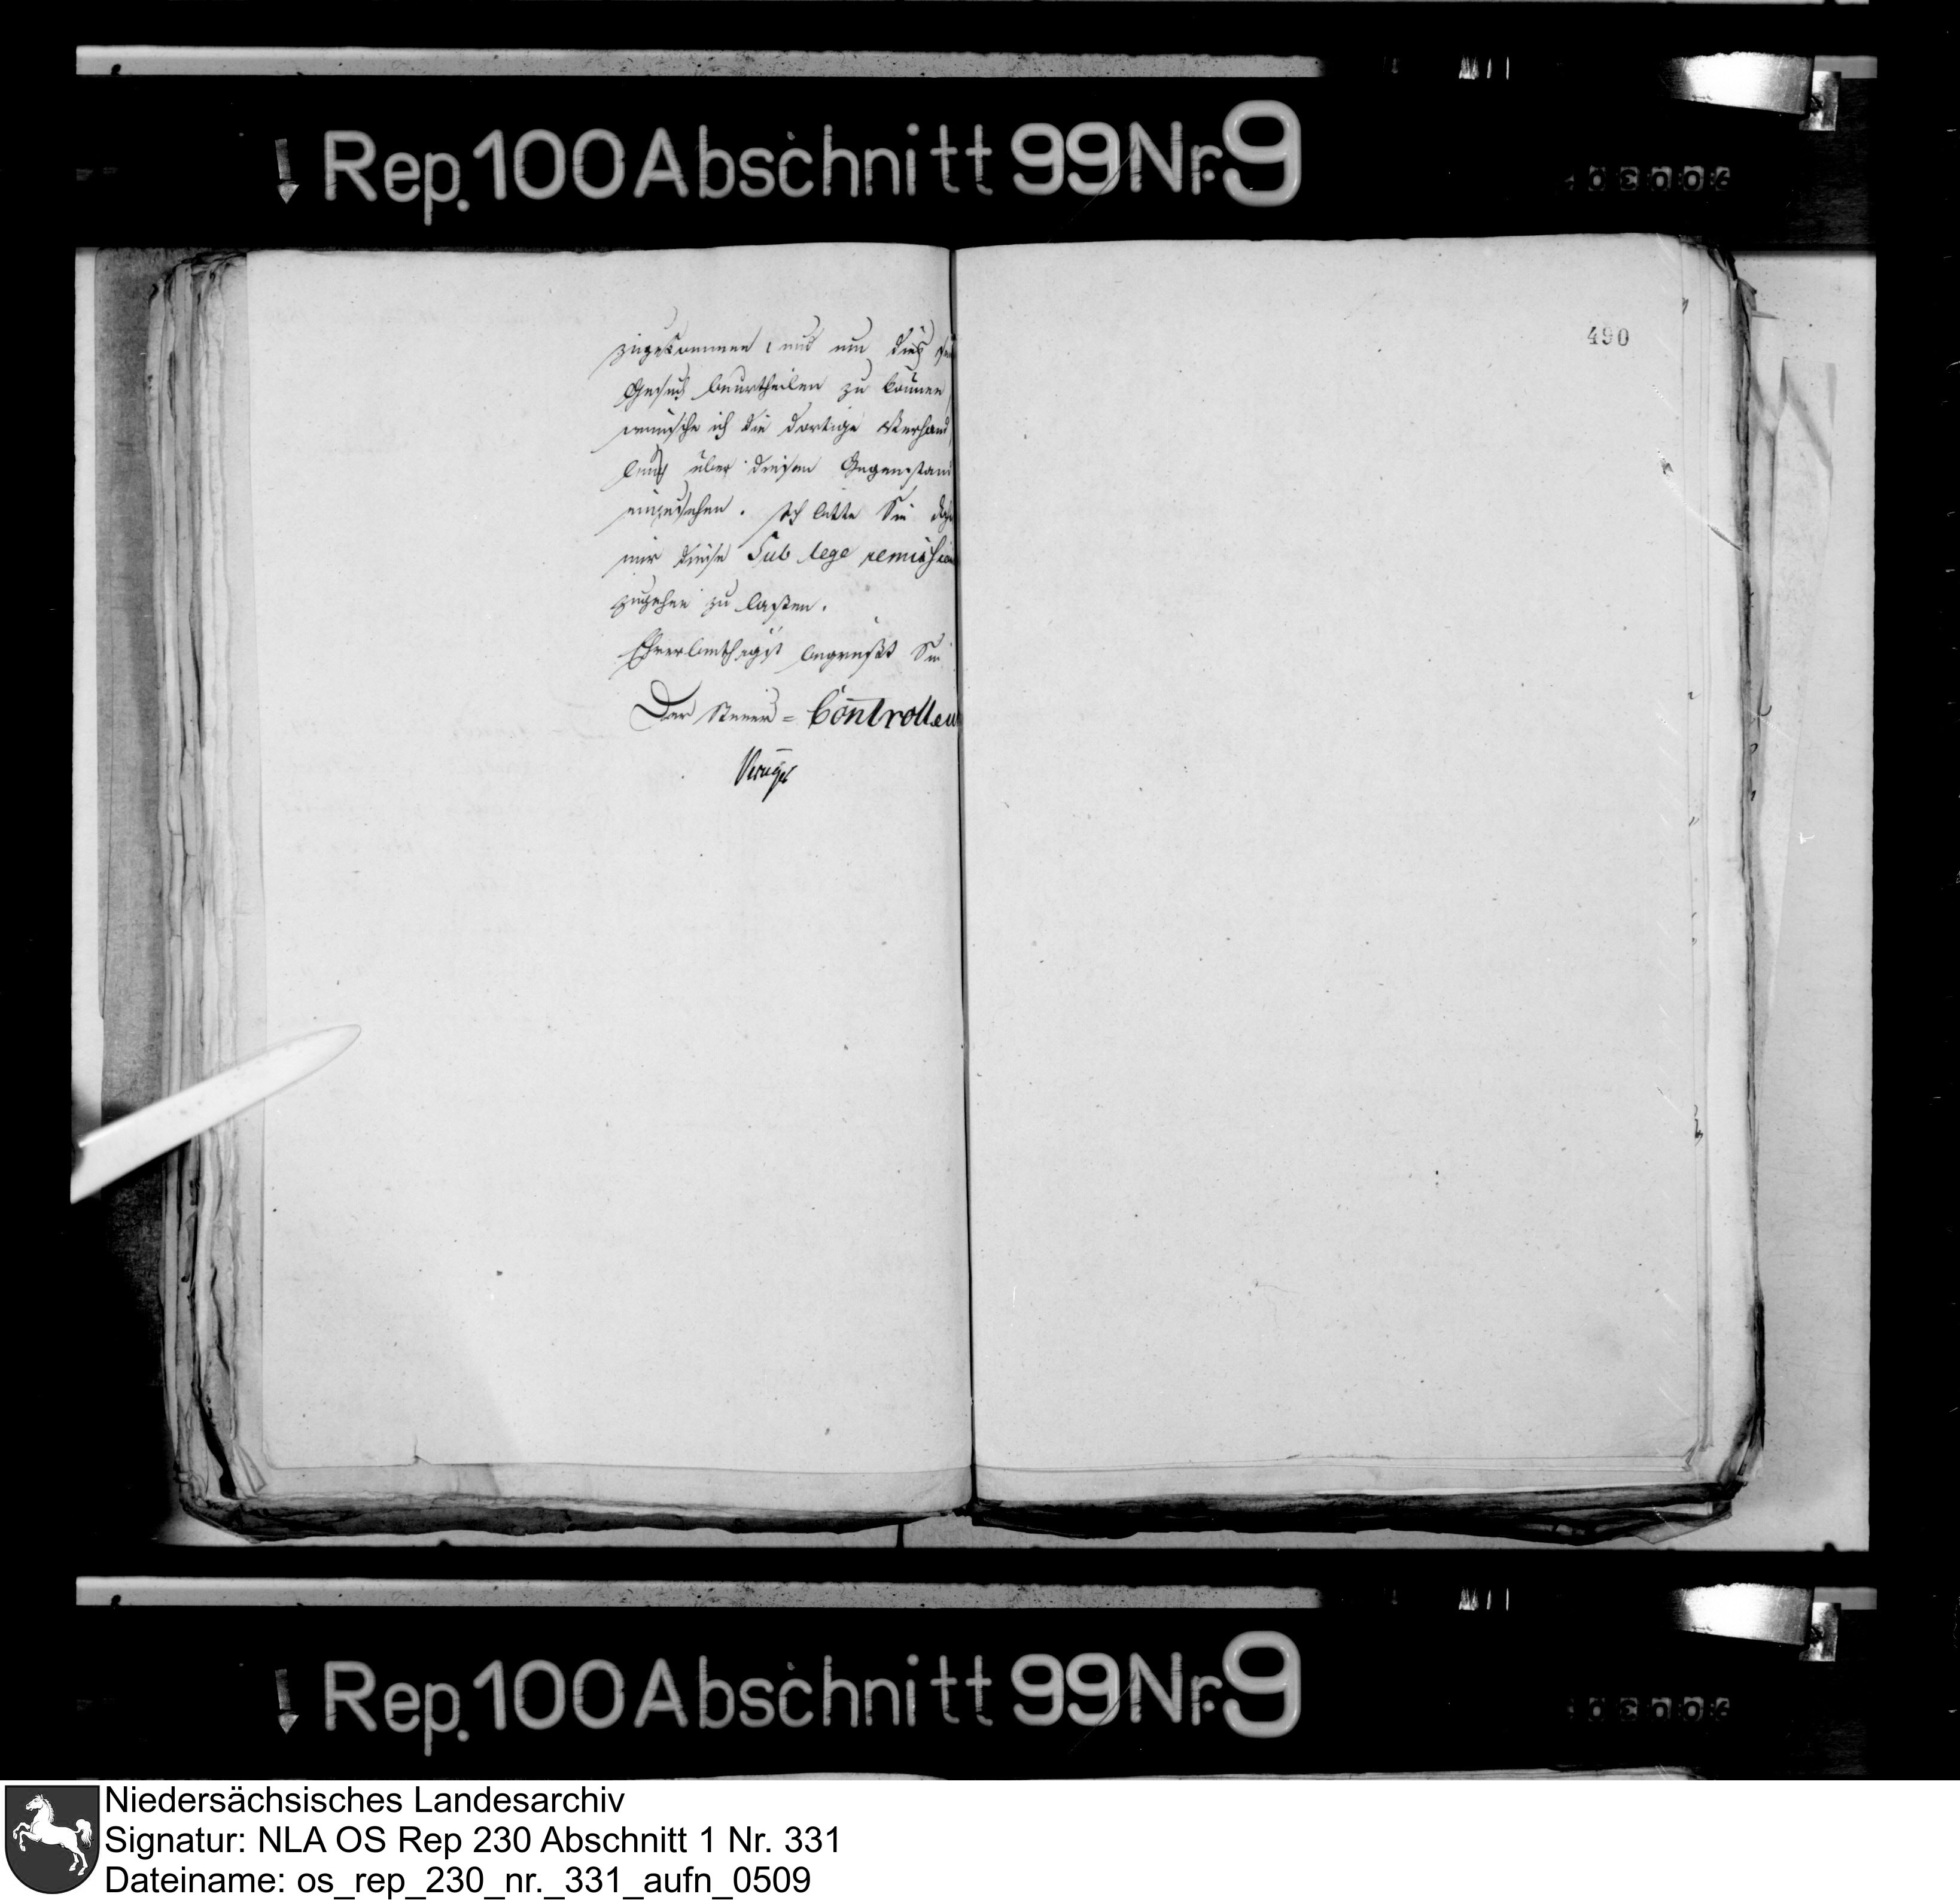 Rep. 100 Abschnitt 99 Nr. 9
490
zugekommen, und um dies
Gesuch beurtheilen zu können
wünsche ich die dortige Verhand
lung über diesen Gegenstand
einzusehen. Ich bitte Sie
mir diese Sub lege remissio
zugehen zu lassen.
Ehrerbiethigst begrüßt Sie
Der Steuer=Controlleu
Rep. 100 Abschnitt 99 Nr. 9
Niedersächsisches Landesarchiv
Signatur: NLA OS Rep 230 Abschnitt 1 Nr. 331
Dateiname: os_rep_230_nr._331_aufn_0509